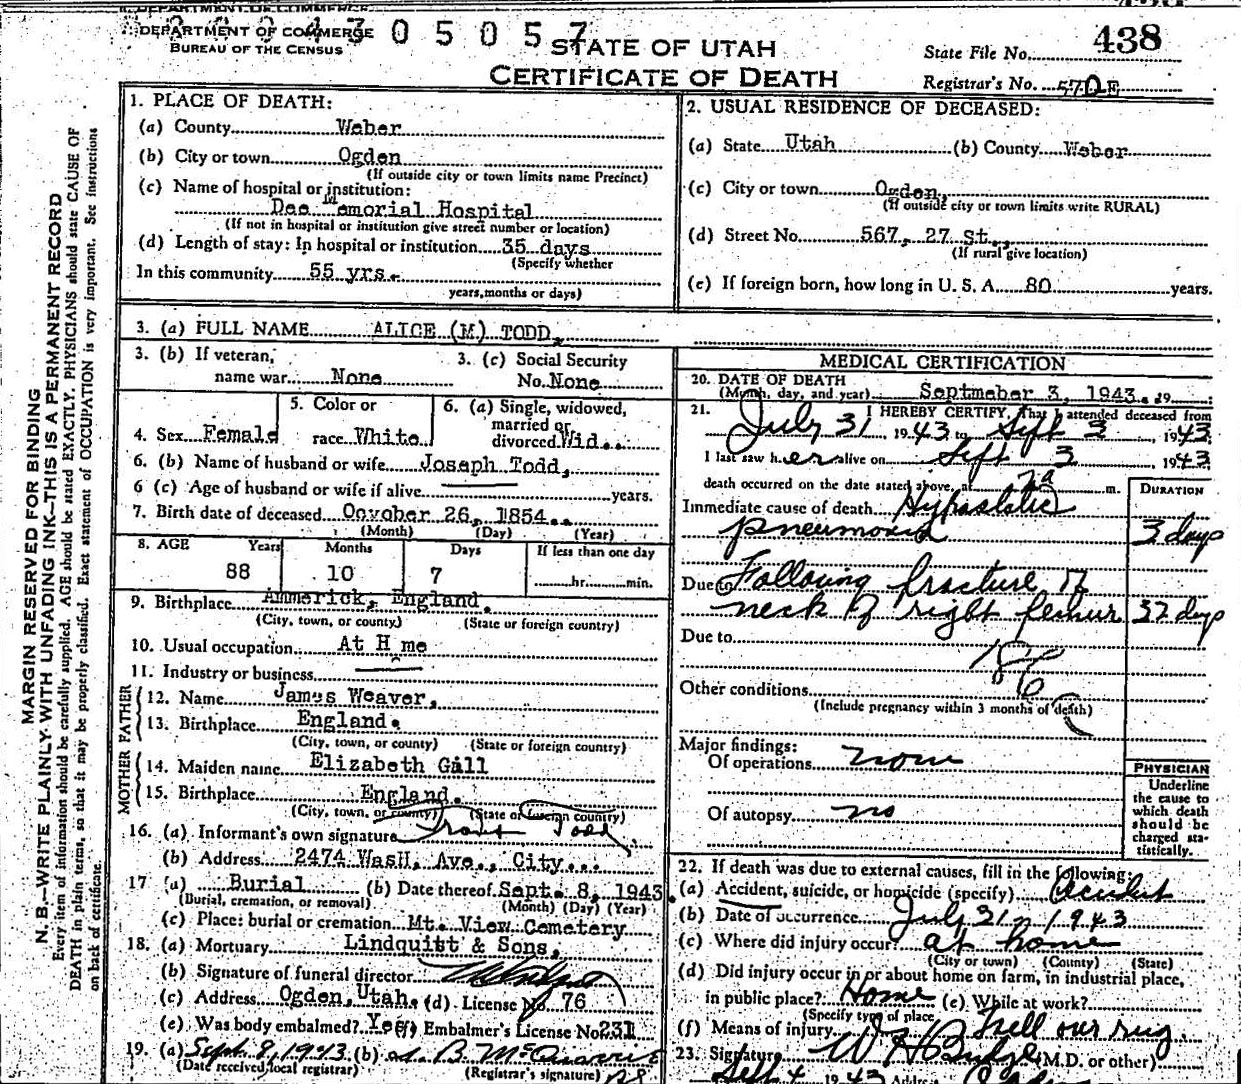 DEPARTMENT OF COMMERCE
BUREAU OF THE CENSUS
0 5 0 5 7
STATE OF UTAH
CERTIFICATE OF DEATH
State File No. 438
Registrar's No. 570 E
MARGIN RESERVED FOR BINDING
N. B.—WRITE PLAINLY WITH UNFADING INK—THIS IS A PERMANENT RECORD
Every item of information should be carefully supplied. AGE should be stated EXACTLY. PHYSICIANS should state CAUSE OF
DEATH in plain terms, so that it may be properly classified. Exact statement of OCCUPATION is very important. See instructions
on back of certificate.
1. PLACE OF DEATH:
(a) County Weber
(b) City or town Ogden
(If outside city or town limits name Precinct)
(c) Name of hospital or institution:
Dee Memorial Hospital
(If not in hospital or institution give street number or location)
(d) Length of stay: In hospital or institution 35 days
(Specify whether
In this community 55 yrs.
years, months or days)
2. USUAL RESIDENCE OF DECEASED:
(a) State Utah (b) County Weber
(c) City or town Ogden,
(If outside city or town limits write RURAL)
(d) Street No. 567, 27 St.,
(If rural give location)
(e) If foreign born, how long in U. S. A. 80 years.
3. (a) FULL NAME ALICE (M) TODD,
3. (b) If veteran, name war None
3. (c) Social Security No. None
4. Sex Female
5. Color or race White
6. (a) Single, widowed, married or divorced Wid..
6. (b) Name of husband or wife Joseph Todd,
6 (c) Age of husband or wife if alive years.
7. Birth date of deceased Ocvober 26, 1854..
(Month) (Day) (Year)
8. AGE Years Months Days If less than one day
88 10 7 hr. min.
9. Birthplace Ammerick, England.
(City, town, or county) (State or foreign country)
10. Usual occupation At H me
11. Industry or business
FATHER
12. Name James Weaver,
13. Birthplace England.
(City, town, or county) (State or foreign country)
MOTHER
14. Maiden name Elizabeth Gall
15. Birthplace England.
(City, town, or county) (State or foreign country)
16. (a) Informant's own signature Todd
(b) Address 2474 WasH. Ave., City...
17 (a) Burial (b) Date thereof Sept. 8, 1943.
(Burial, cremation, or removal) (Month) (Day) (Year)
(c) Place: burial or cremation Mt. View Cemetery
18. (a) Mortuary Lindquist & Sons,
(b) Signature of funeral director
(c) Address Ogden, Utah. (d) License No 76
(e) Was body embalmed? Yes (f) Embalmer's License No 231
19. (a) Sept. 8, 1943 (b)
(Date received local registrar) (Registrar's signature)
MEDICAL CERTIFICATION
20. DATE OF DEATH
(Month, day, and year) Septmeber 3, 1943.. 19
21. I HEREBY CERTIFY, That I attended deceased from
July 31, 1943 to Sept 3, 1943
I last saw her alive on Sept 3, 1943
death occurred on the date stated above, at 7a m.
DURATION
Immediate cause of death Hypostatic
pneumonia 3 days
Due to Following fracture of
neck of right femur 37 days
Due to
186
Other conditions
(Include pregnancy within 3 months of death)
Major findings:
Of operations none
Of autopsy no
PHYSICIAN
Underline
the cause to
which death
should be
charged sta-
tistically.
22. If death was due to external causes, fill in the following:
(a) Accident, suicide, or homicide (specify) Accident
(b) Date of occurrence July 31 1943
(c) Where did injury occur? at home
(City or town) (County) (State)
(d) Did injury occur in or about home on farm, in industrial place,
in public place? Home (e) While at work?
(Specify type of place
(f) Means of injury fell our rug.
23. Signature W H Budge (M.D. or other)
Sept 4 1943